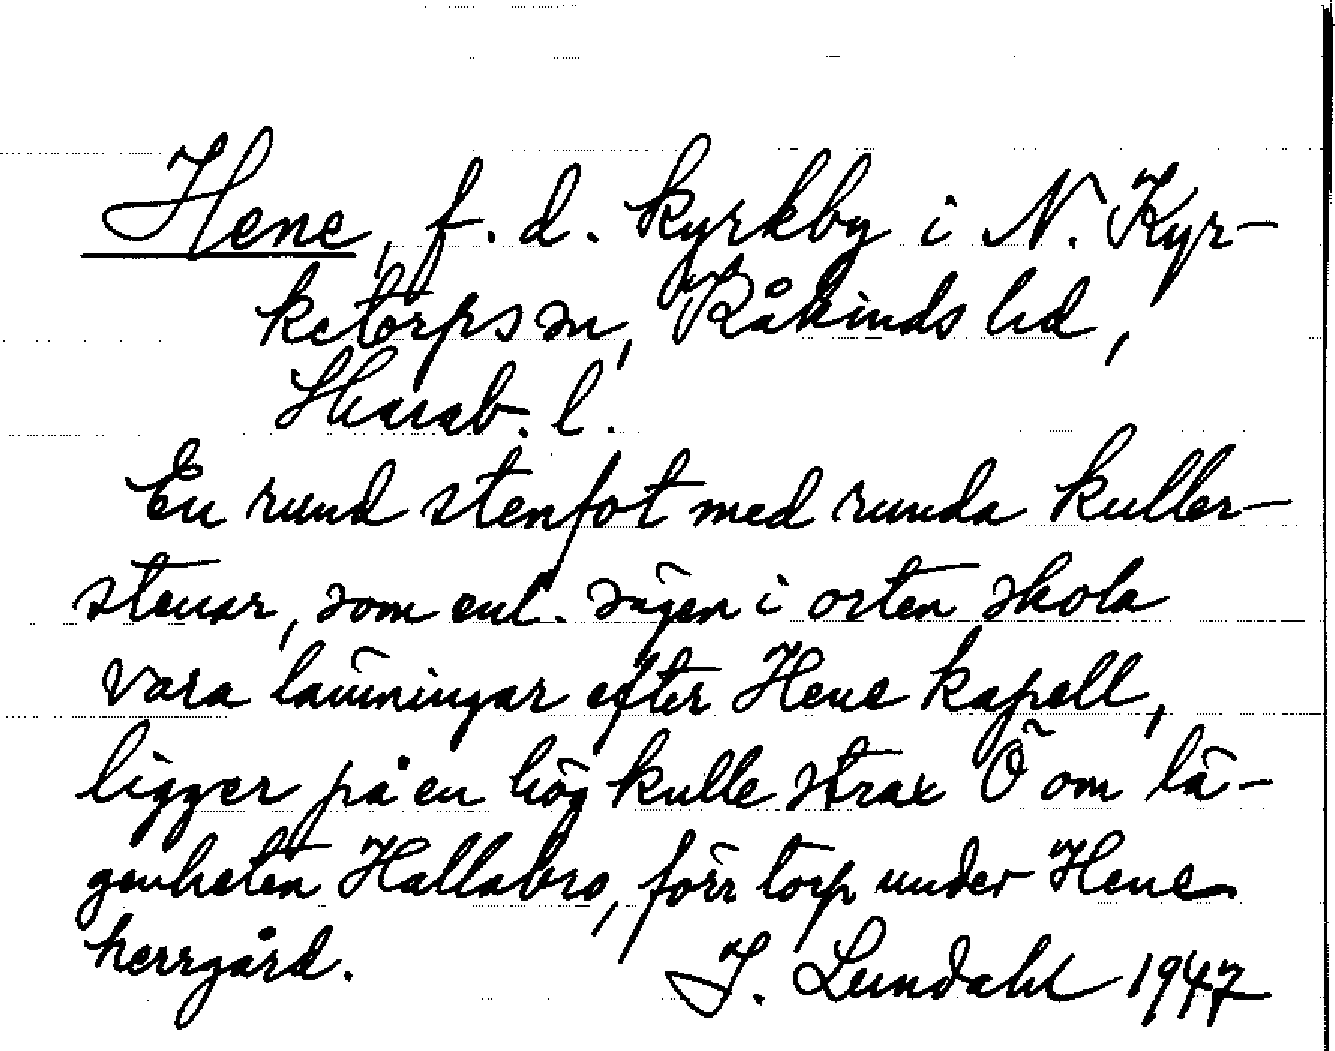 Hene, f. d. kyrkby i N. Kyr-
ketorps sn, Kåkinds hd,
Skarab. l.
En rund stenfot med runda kuller-
stenar, som enl. sägen i orten skola
vara lämningar efter Hene kapell,
ligger på en hög kulle strax Ö om lä-
genheten Hallabro, förr torp under Hene
herrgård.
I. Lundahl 1947